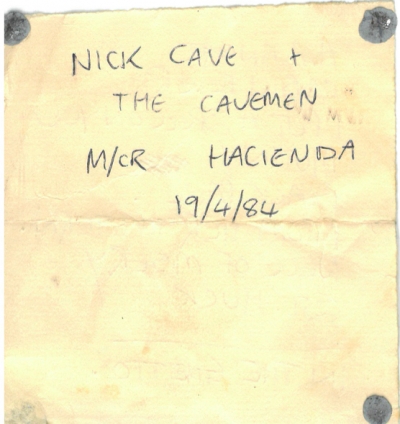 NICK CAVE +
THE CAVEMEN
M/CR HACIENDA
19/4/84